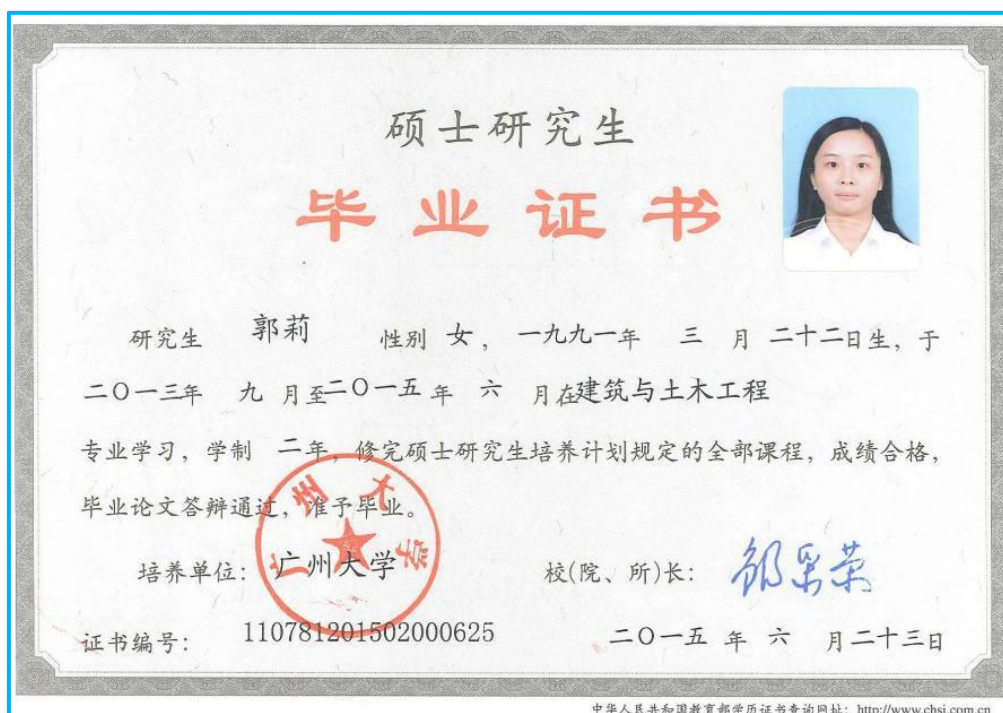 硕士研究生
毕业证书
研究生 郭莉 性别 女，一九九一年 三 月 二十二日生，于
二〇一三年 九 月至二〇一五年 六 月在建筑与土木工程
专业学习，学制 二年，修完硕士研究生培养计划规定的全部课程，成绩合格，
毕业论文答辩通过，准予毕业。
广州大学
培养单位：广州大学 校(院、所)长：
证书编号：110781201502000625 二〇一五 年 六 月二十三日
中华人民共和国教育部学历证书查询网址：http://www.chsi.com.cn